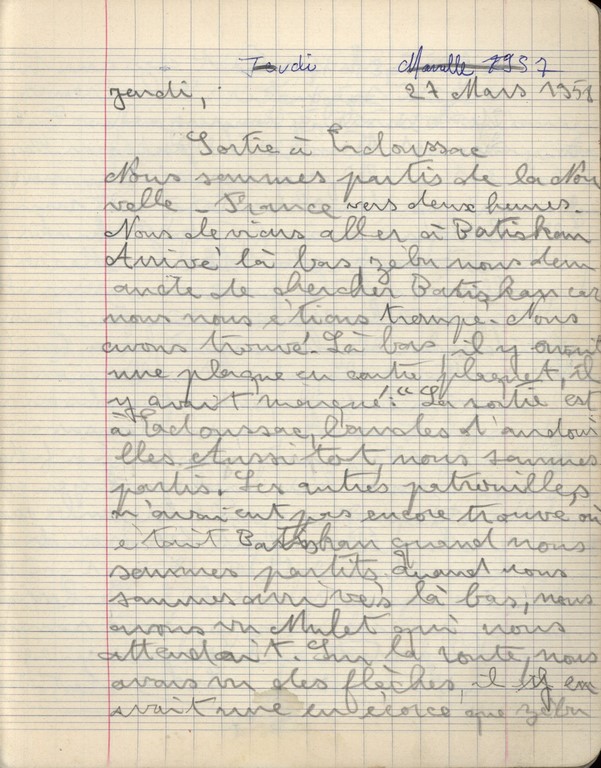 Jeudi Marelle 1957
jeudi, 27 Mars 1958
Sortie à Tadoussac
Nous sommes partis de la Nou
velle - France vers deux heures.
Nous devions aller à Batiskan
Arrivé là bas, zebu nous dem
anda de chercher Batiskan car
nous nous étions trompé. Nous
avons trouvé. Là bas, il y avait
une plaque en contre plaquet, il
y avait marqué: "La sortie est
à Tadoussac, bandes d'andoui
lles. Aussi tot, nous sommes
partis. Les autres patrouilles
n'avaient pas encore trouvé où
était Batiskan quand nous
sommes partits. Quand nous
sommes arrivés là bas, nous
avons vu Mulet qui nous
attendait. Sur la route, nous
avons vu des flèches, il y en
avait une en écorce que zebu